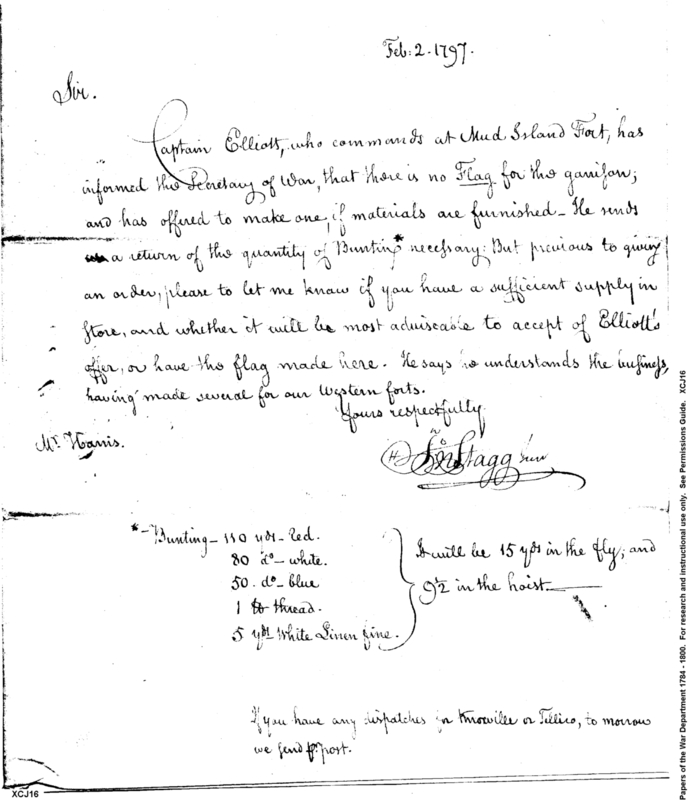 Feb: 2. 1797.
Sir.
Captain Elliott, who commands at Mud Island Fort, has
informed the Secretary of War, that there is no Flag for the garrison;
and has offered to make one, if materials are furnished_ He sends
a return of the quantity of Bunting* necessary: But previous to giving
an order, please to let me know if you have a sufficient supply in
Store, and whether it will be most adviseable to accept of Elliott's
offer, or have the flag made here. He says he understands the business,
having made several for our Western forts.
Yours respectfully
Mr. Harris.
Jno Stagg Junr
*-Bunting_ 110 yds_ Red.
80 do_ white.
50. do_ blue
1 lb thread.
5 yds White Linen fine.
It will be 15 yds in the fly; and
9½ in the hoist.
If you have any dispatches for Knoxville or Tellico, to morrow
we send p. post.
XCJ16
Papers of the War Department 1784 - 1800. For research and instructional use only. See Permissions Guide. XCJ16